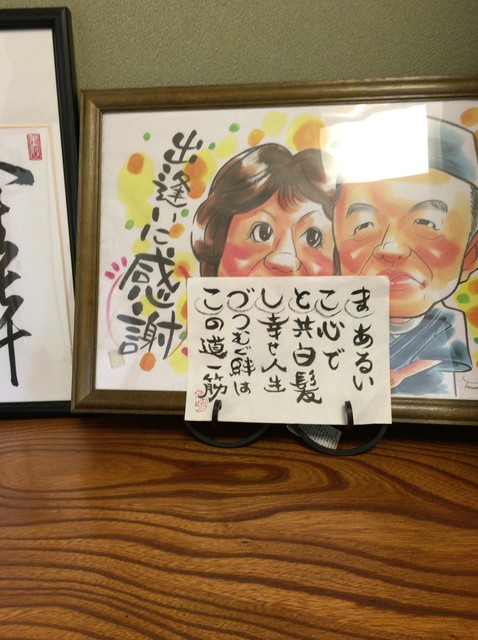 出逢いに
感謝
まあるい
こ心で
と共白髪
し幸せ人生
づつむぐ絆は
この道一筋